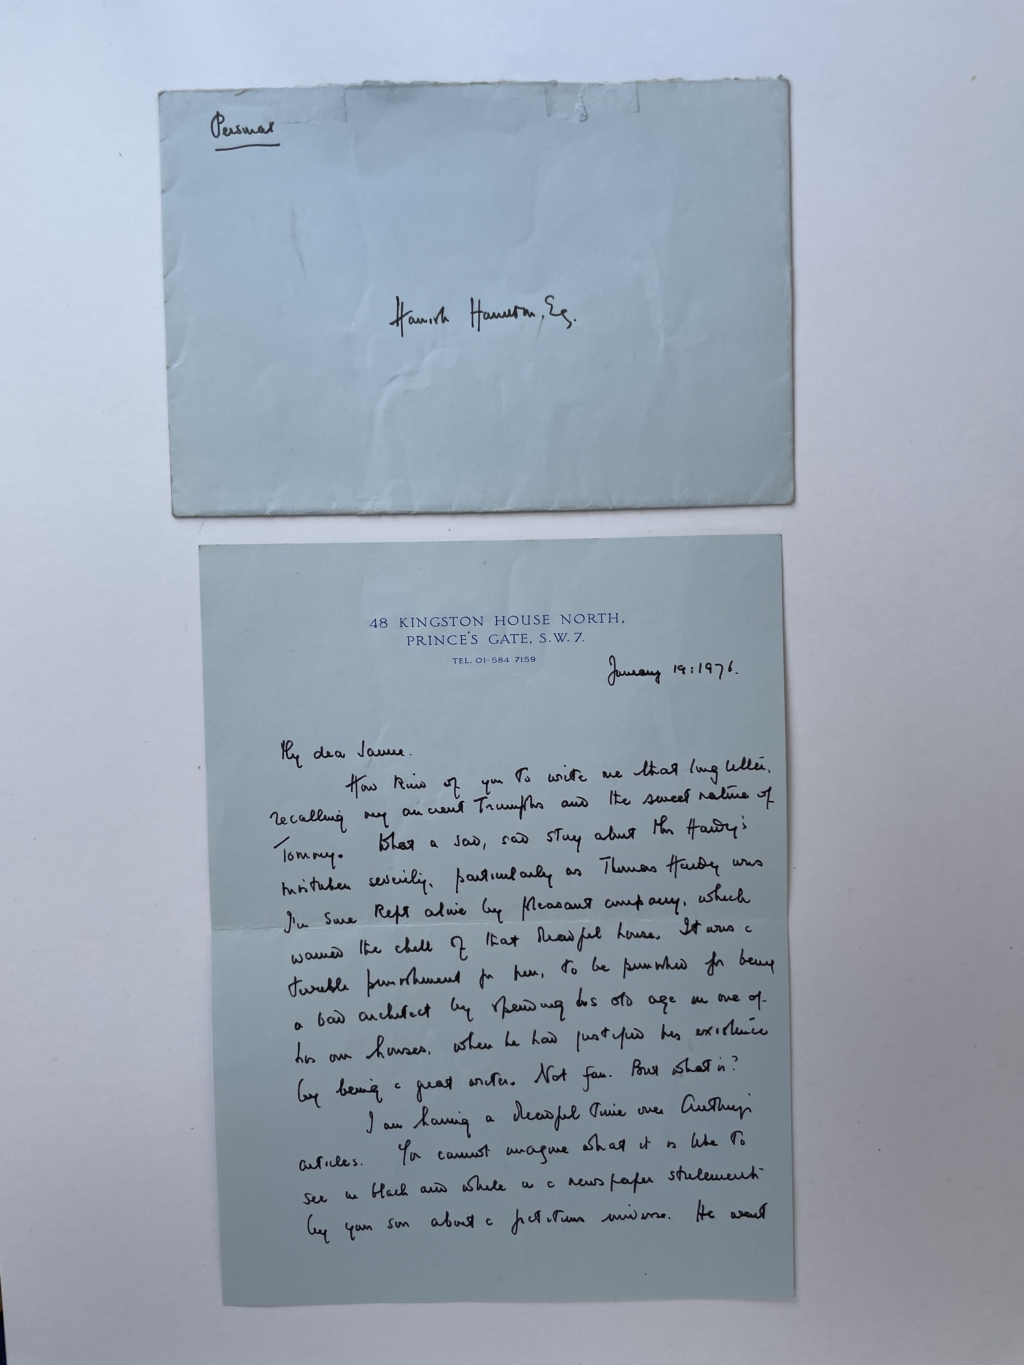 Personal
Hamish Hamilton, Esq.
48 KINGSTON HOUSE NORTH,
PRINCE'S GATE, S.W.7.
TEL. 01-584 7159
January 19: 1976.
My dear Jamie.
How kind of you to write me that long letter,
recalling my ancient Triumphs and the sweet nature of
Tommy. What a sad, sad story about Mrs Hardy's
mistaken severity, particularly as Thomas Hardy was
I'm sure kept alive by pleasant company, which
warmed the chill of that dreadful house. It was a
terrible punishment for him, to be punished for being
a bad architect by spending his old age in one of
his own houses, when he had justified his existence
by being a great writer. Not fair. But what is?
I am having a dreadful time over Anthony's
articles. You cannot imagine what it is like to
see in black and white in a newspaper statements
by your son about a fictitious universe. He went